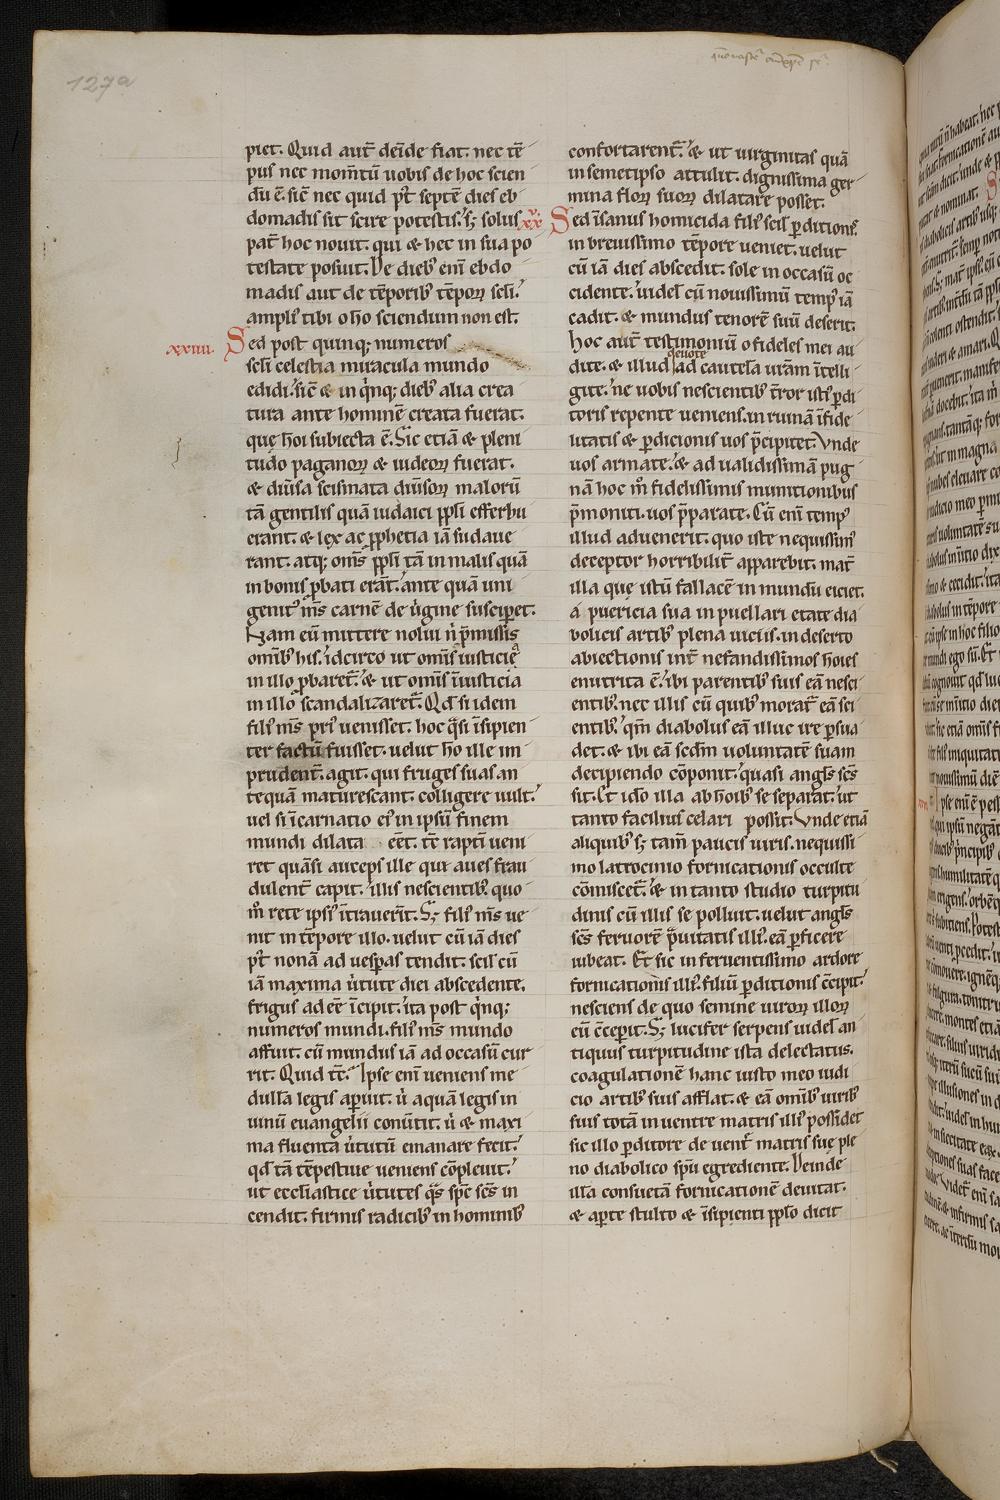 127a
piet. Quid aut̄ deīde fiat. nec tē
pus nec mom̄tū uobis de hoc scien
dū ē. sic̄ nec quid p̄t septē dies eb
domadis sit scire potestis. sꝫ solus
pat̄ hoc nouit. qui & hec in sua po
testate posuit. De dieb; enī ebdo
madis aut de tēporib; tēpoꝝ scl̄i.
ampli᷒ tibi o hō sciendum non est.
xxiiii. Sed post quinq; numeros
scl̄i celestia miracula mundo
edidi. sic̄ & in q̇nq; dieb; alia crea
tura ante hominē creata fuerat.
quę hoı̄ subiecta ē. Sic etiā & pleni
tudo paganoꝝ & iudeoꝝ fuerat.
& diūsa scismata diūsoꝝ maloꝝ
tā gentilis quā iudaici ppl̄i efferbu
erant. & lex ac ꝓphetia iā sudaue
rant. atq; om̄s ppl̄i tā in malis quā
in bonis ꝓbati erāt. ante quā uni
genit᷒ m̄s carnē de ūgine susciꝑet.
Nam eū mittere nolui n̄ p̄missis
omīb; his. idcirco ut om̄is iusticia
in illo ꝓbaret̄. & ut om̄is īiusticia
in illo scandalizaret̄. Qd̄ si idem
fili᷒ m̄s pri᷒ uenisset. hoc q̄si īsipien
ter factū fuisset. uelut hō ille im
prudent̄ agit. qui fruges suas an
tequā maturescant. colligere uult.
uel si īcarnatio ei᷒ in ipsū finem
mundi dilata eēt. tc̄ raptī ueni
ret quāsi auceps ille qui aues frau
dulent̄ capit. illis nescientib; quo
m̄ rete ipsi᷒ ītrauerīt. Sꝫ fili᷒ m̄s ue
nit in tēpore illo. uelut cū iā dies
p̄t nonā ad uesꝑas tendit. scil̄ cū
iā maxima ūtute diei abscedente.
frigus adeē īcipit. ita post q̇nq;
numeros mundi. fili᷒ m̄s mundo
affuit. cū mundus iā ad occasū cur
rit. Quid tc̄. Ipse enī ueniens me
dulla legis aꝑuit. ū aquā legis in
uinū euangelii conūtit. ū & maxi
ma fluenta ūtutū emanare fecit.
qd̄ tā tēpestiue ueniens cōpleuit.
ut eccl̄iastice ūtutes q̄s sp̄c sc̄s in
cendit. firmis radicib; in hominib;
confortarent̄. & ut uirginitas quā
in semetipso attulit. dignissima ger
mina floꝝ suoꝝ dilatare posset.
xxv. Sed īsanus homicida fili᷒ scil̄ ꝑditionis᷒
in breuissimo tēpore ueniet. uelut
cū iā dies abscedit. sole in occasū oc
cidente. uidel̄ cū nouissimū temp᷒ iā
cadit. & mundus tenorē suū deserit.
hoc aut̄ testimoniū o fideles mei au
dite. & illud deuote ad cautela uram ītelli
gite. ne uobis nescientib; t̄ror isti᷒ ꝑdi
toris repente ueniens. in ruinā īfide
litatis & ꝑdicionis uos p̄cipitet. Vnde
uos armate. & ad ualidissimā pug
nā hoc m̄ fidelissimis munitionibus
p̄moniti. uos p̄parate. Cū enī temp᷒
illud aduenerit. quo iste nequissim᷒
deceptor horribilit̄ apparebit. mat̄
illa quę istū fallacē in mundū eiciet.
á puericia sua in puellari etate dia
bolicis artib; plena uiciis. in deserto
abiectionis int̄ nefandissimos hoı̄es
enutrita ē. ibi parentib; suis eā nesci
entib;. nec illis cū quib; morat̄ eā sci
entib;. qm̄ diabolus eā illuc ire ꝑsua
det. & ibi eā scd̄m uoluntatē suam
decipiendo cōponit. quasi angl̄s sc̄s
sit. Et idō illa ab hoı̄b; se separat. ut
tanto facilius celari possit. Vnde etiā
aliquib; sꝫ tam̄ paucis uiris. nequissi
mo latrocinio fornicationis occulte
cōmiscet̄. & in tanto studio turpitu
dinis cū illis se polluit. uelut angl̄s
sc̄s feruorē p̄uitatis illi᷒. eā ꝑficere
iubeat. Et sic in feruentissimo ardore
fornicationis illi᷒. filiū ꝑditionis c̄cipit.
nesciens de quo semine uiroꝝ illoꝝ
eū c̄ceꝑit. Sꝫ lucifer serpens uidel̄ an
tiquus turpitudine ista delectatus.
coagulationē hanc iusto meo iudi
cio artib; suis afflat. & eā omīb; uirib;
suis totā in uentre matris illi᷒ possidet
sic illo ꝑditore de uent̄ matris suę ple
no diabolico sp̄u egrediente. Deinde
illa consuetā fornicationē deuitat.
& aꝑte stulto & īsipienti ppl̄o dicit